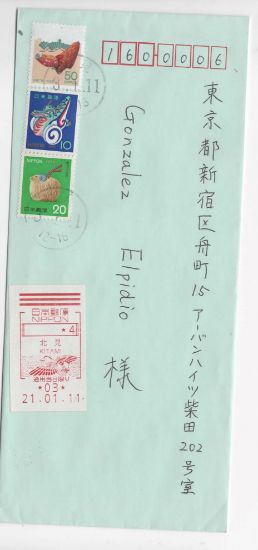 1600006
東京都新宿区舟町15 アーバンハイツ柴田202号室
Gonzalez Elpidio 様
50
日本郵便
10
NIPPON
日本郵便 20
日本郵便
NIPPON
*4
北見
KITAMI
*03*
21.01.11